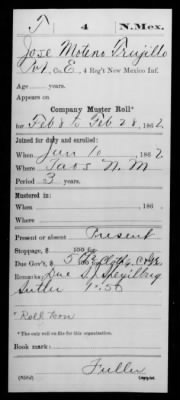 T | 4 | N.Mex.
Jose Moteno Trujillo
Pvt, Co. E, 4 Reg't New Mexico Inf.
Age years.
Appears on
Company Muster Roll*
for Feb 8 to Feb 28, 1862
Joined for duty and enrolled:
When Jan 10, 1862
Where Taos N.M
Period 3 years
Mustered in:
When , 186 .
Where
Present or absent Present
Stoppage, $ 100 for
Due Gov't, $ 100 for
Remarks: Due S.J. Speigilberg
Sutler
*Roll
*The only roll on file for this organization.
Book mark:
Fuller
Copyist.